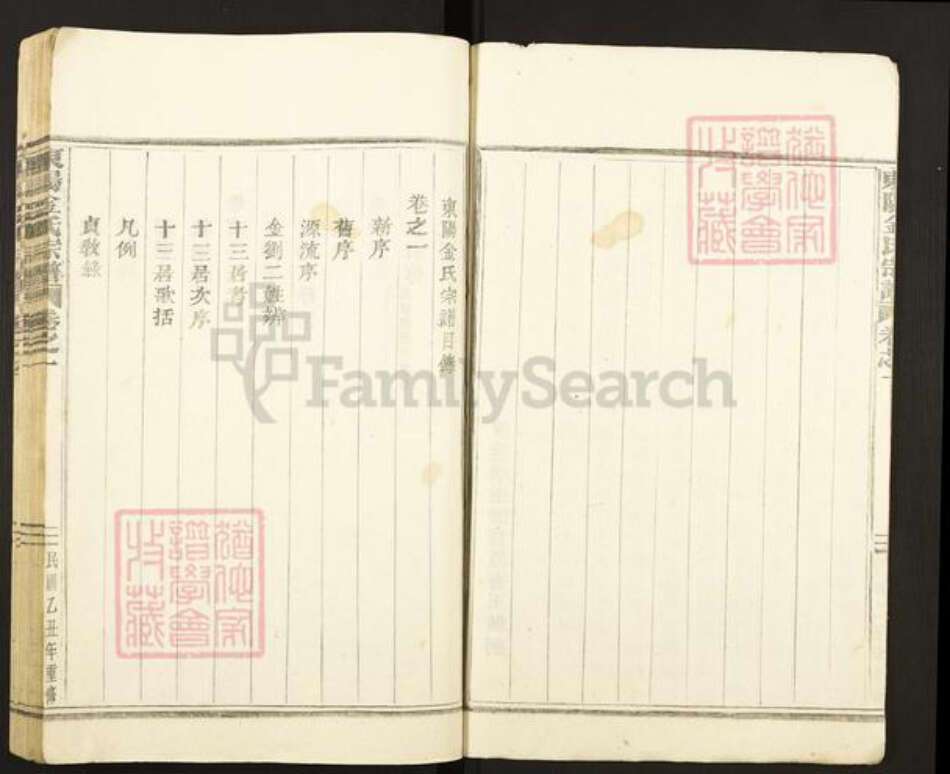 東陽金氏宗譜
卷之一
東陽金氏宗譜目傳
卷之一
新序
舊序
源流序
金劉二姓辨
十三居考
十三居次序
十三居歌括
凡例
貞教錄
東陽金氏宗譜
卷之一
民國乙丑年重脩
猶他家
譜學會
收藏
猶他家
譜學會
收藏
FamilySearch